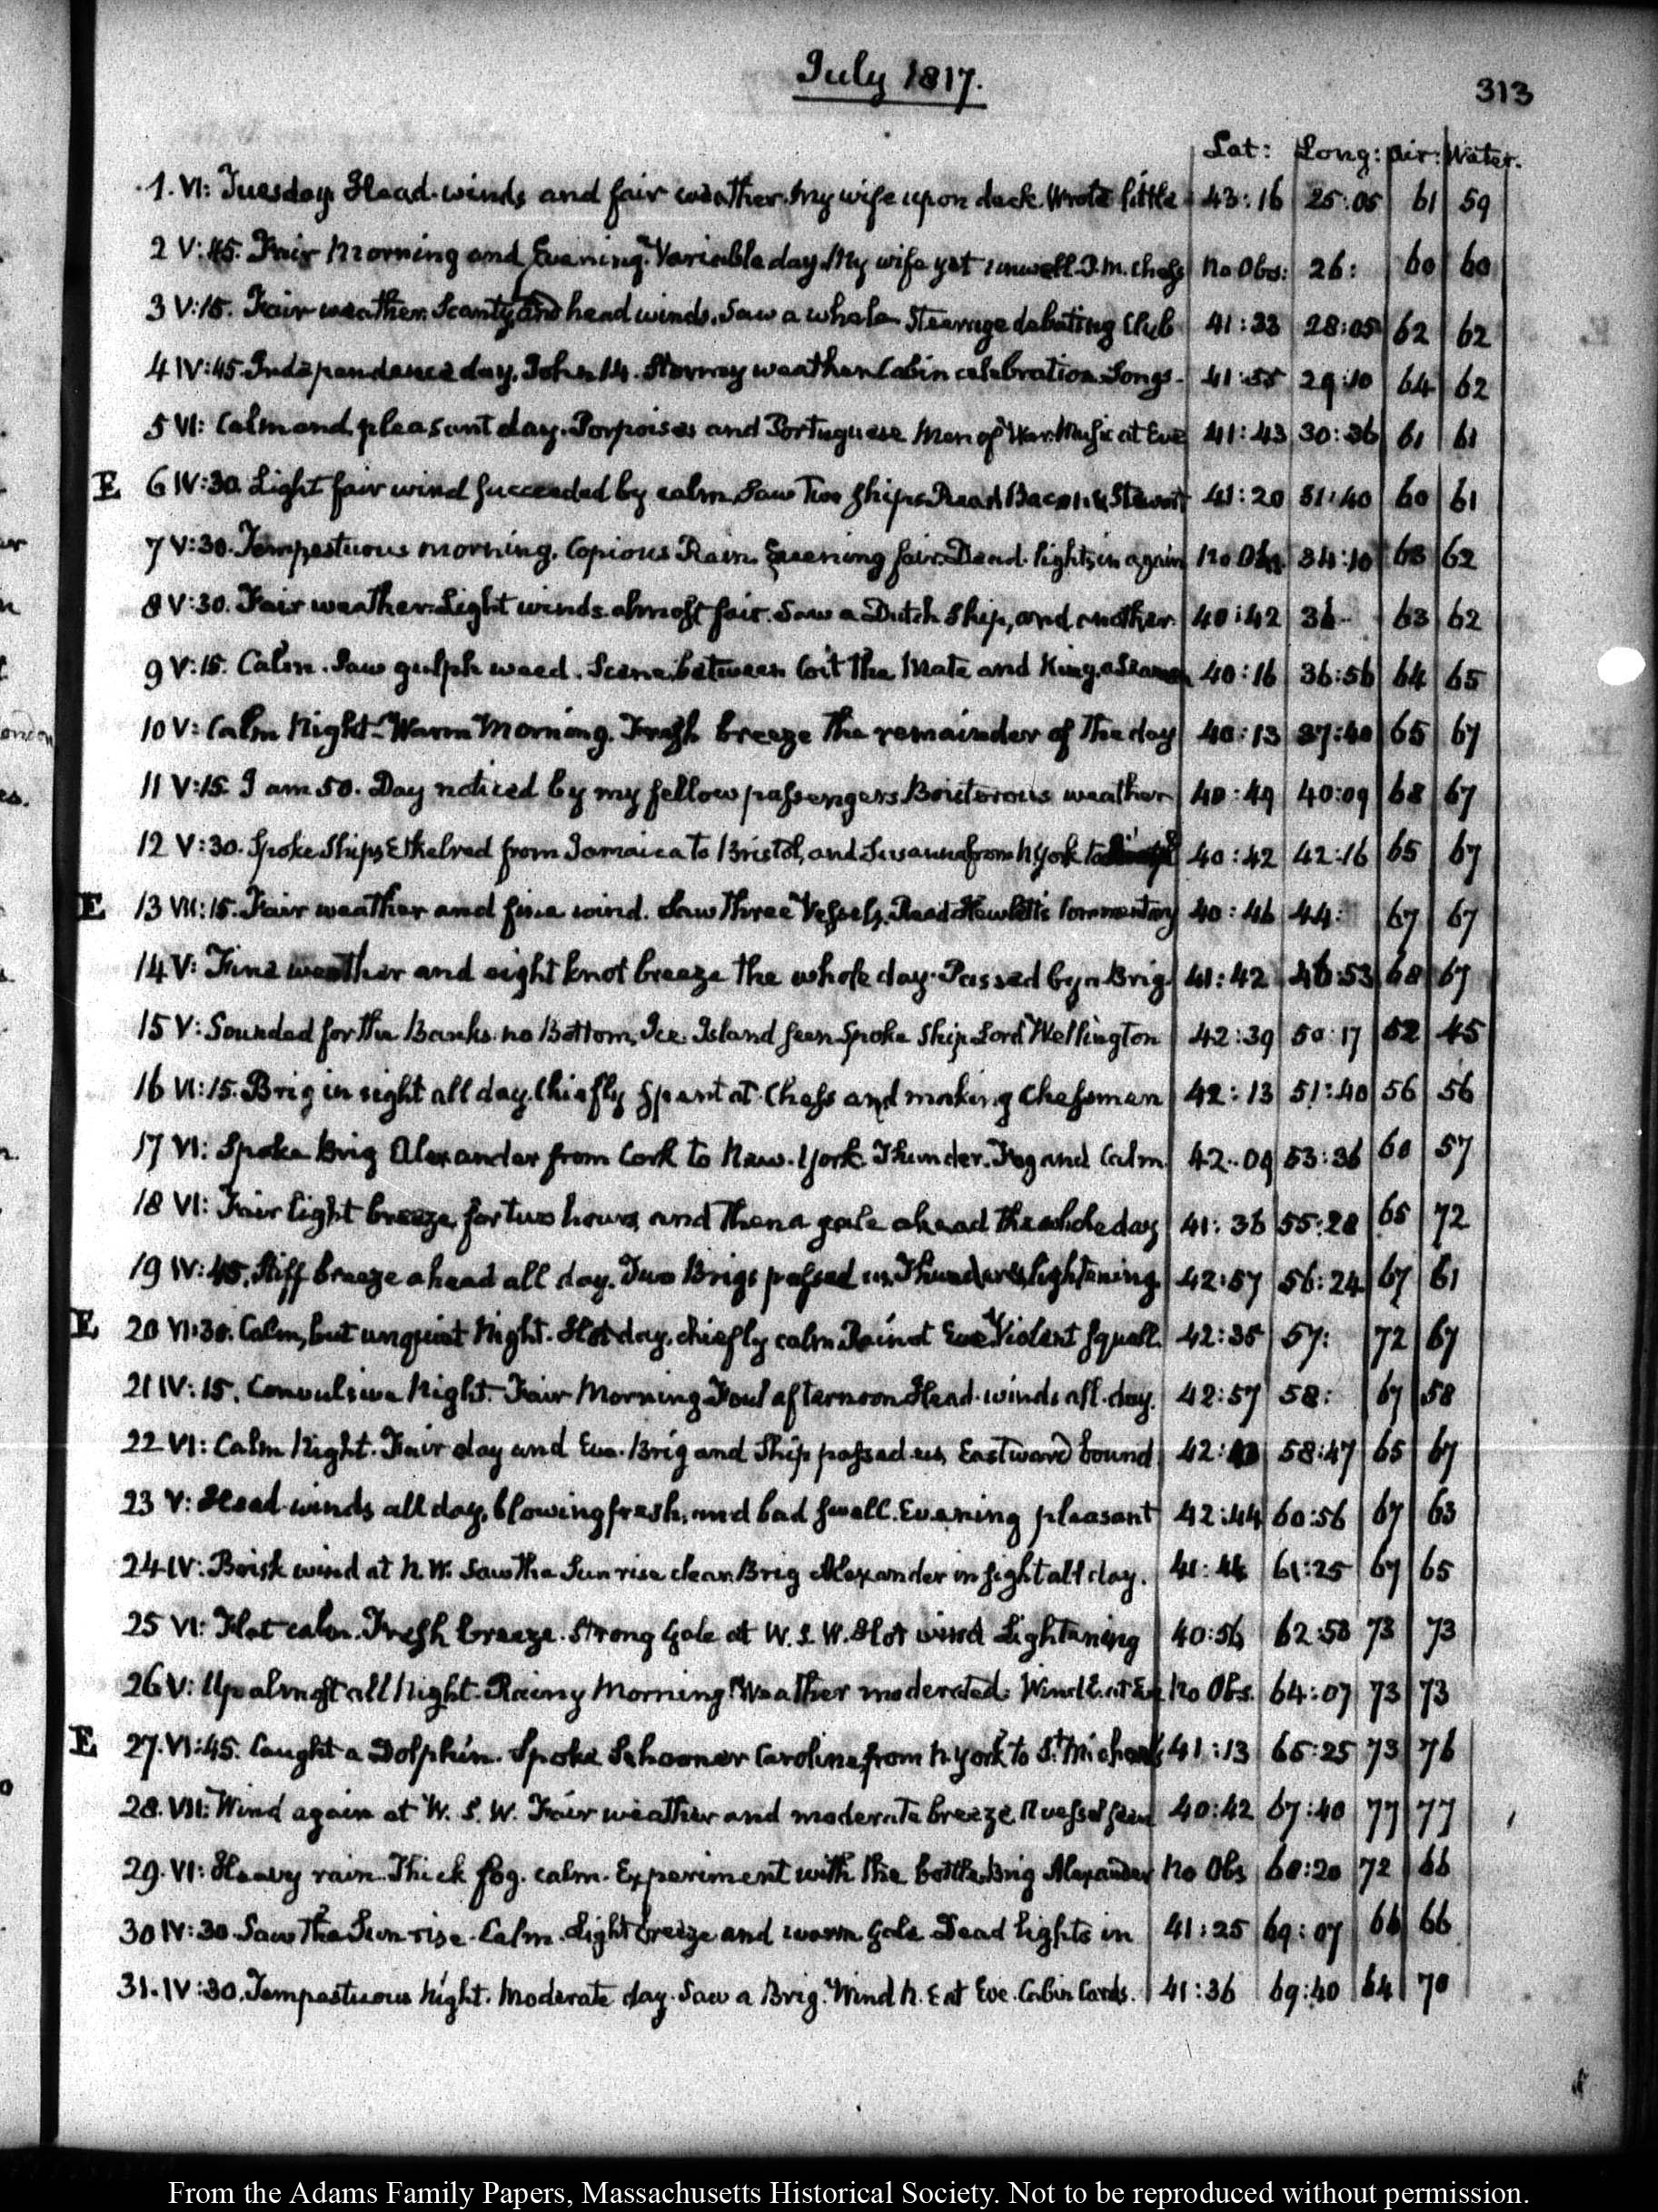 July 1817.
313
Lat: Long: Air: Water.
1. VI: Tuesday. Head-winds and fair weather. My wife upon deck. Wrote little 43:16 25:05 61 59
2 V:45. Fair Morning and Evening. Variable day. My wife yet unwell. J.M. chess No Obs: 26: 60 60
3 V:15. Fair weather. Scanty and head winds. Saw a whale Steerage debating Club 41:33 28:05 62 62
4 IV:45. Independence day. John 14. Stormy weather. Cabin celebration Songs. 41:55 29:10 64 62
5 VI: Calm and pleasant day. Porpoises and Portuguese Men of War. Musick at Eve 41:43 30:36 61 61
E 6 IV:30. Light fair wind succeeded by calm. Saw Two Ships. Read Bacon & Stewart 41:20 31:40 60 61
7 V:30. Tempestuous morning. Copious Rain. Evening fair. Dead-lights in again No Obs 34:10 63 62
8 V:30. Fair weather. Light winds almost fair. Saw a Dutch Ship, and another. 40:42 36 63 62
9 V:15. Calm. Saw gulph weed. Scene between Coit the Mate and King, a Seaman 40:16 36:56 64 65
10 V: Calm Night. Warm Morning. Fresh breeze the remainder of the day 40:13 37:40 65 67
11 V:15. I am 50. Day noticed by my fellow passengers Boisterous weather 40:49 40:09 68 67
12 V:30. Spoke Ships Ethelred from Jamaica to Bristol, and Susanna from N. York to 40:42 42:16 65 67
E 13 VII:15. Fair weather and fine wind. Saw three Vessels. Read Hewlett's Commentary 40:46 44: 67 67
14 V: Fine weather and eight knot breeze the whole day. Passed by a Brig. 41:42 46:53 68 67
15 V: Sounded for the Banks no Bottom. Ice-Island seen Spoke Ship Lord Wellington 42:39 50:17 52 45
16 VI:15. Brig in sight all day. Chiefly spent at Chess and making Chessmen 42:13 51:40 56 56
17 VI: Spoke Brig Alexander from Cork to New-York. Thunder. Fog and Calm 42:09 53:36 60 57
18 VI: Fair light breeze for two hours, and then a gale ahead the whole day 41:36 55:28 65 72
19 IV:45. Stiff breeze ahead all day. Two Brigs passed us. Thunder & lightening. 42:57 56:24 67 61
E 20 VI:30. Calm, but unquiet Night. Hot day, chiefly calm. Rain at Eve. Violent squall. 42:35 57: 72 67
21 IV:15. Convulsive Night. Fair Morning Foul afternoon Head-winds all day. 42:57 58: 67 58
22 VI: Calm Night. Fair day and Eve. Brig and Ship passed us, Eastward bound 42: 58:47 65 67
23 V: Head-winds all day, blowing fresh, and bad swell. Evening pleasant 42:44 60:56 67 63
24 IV: Brisk wind at N.W. Saw the Sun rise clear. Brig Alexander in sight all day. 41:44 61:25 67 65
25 VI: Flat calm. Fresh breeze. Strong Gale at W.S.W. Hot wind Lightening 40:56 62:58 73 73
26 V: Up almost all Night. Rainy Morning. Weather moderated. Wind E. at Eve No Obs. 64:07 73 73
E 27. VI:45. Caught a Dolphin. Spoke Schooner Caroline, from N. York to St. Michael's 41:13 65:25 73 76
28. VII: Wind again at W.S.W. Fair weather and moderate breeze. A vessel seen 40:42 67:40 77 77
29. VI: Heavy rain. Thick fog. calm. Experiment with the bottle. Brig Alexander No Obs 68:20 72 66
30 IV:30. Saw the Sun rise. Calm. Light breeze and warm gale Dead lights in 41:25 69:07 66 66
31. IV:30. Tempestuous night. Moderate day. Saw a Brig. Wind N.E at Eve. Cabin Cards. 41:36 69:40 64 70
From the Adams Family Papers, Massachusetts Historical Society. Not to be reproduced without permission.